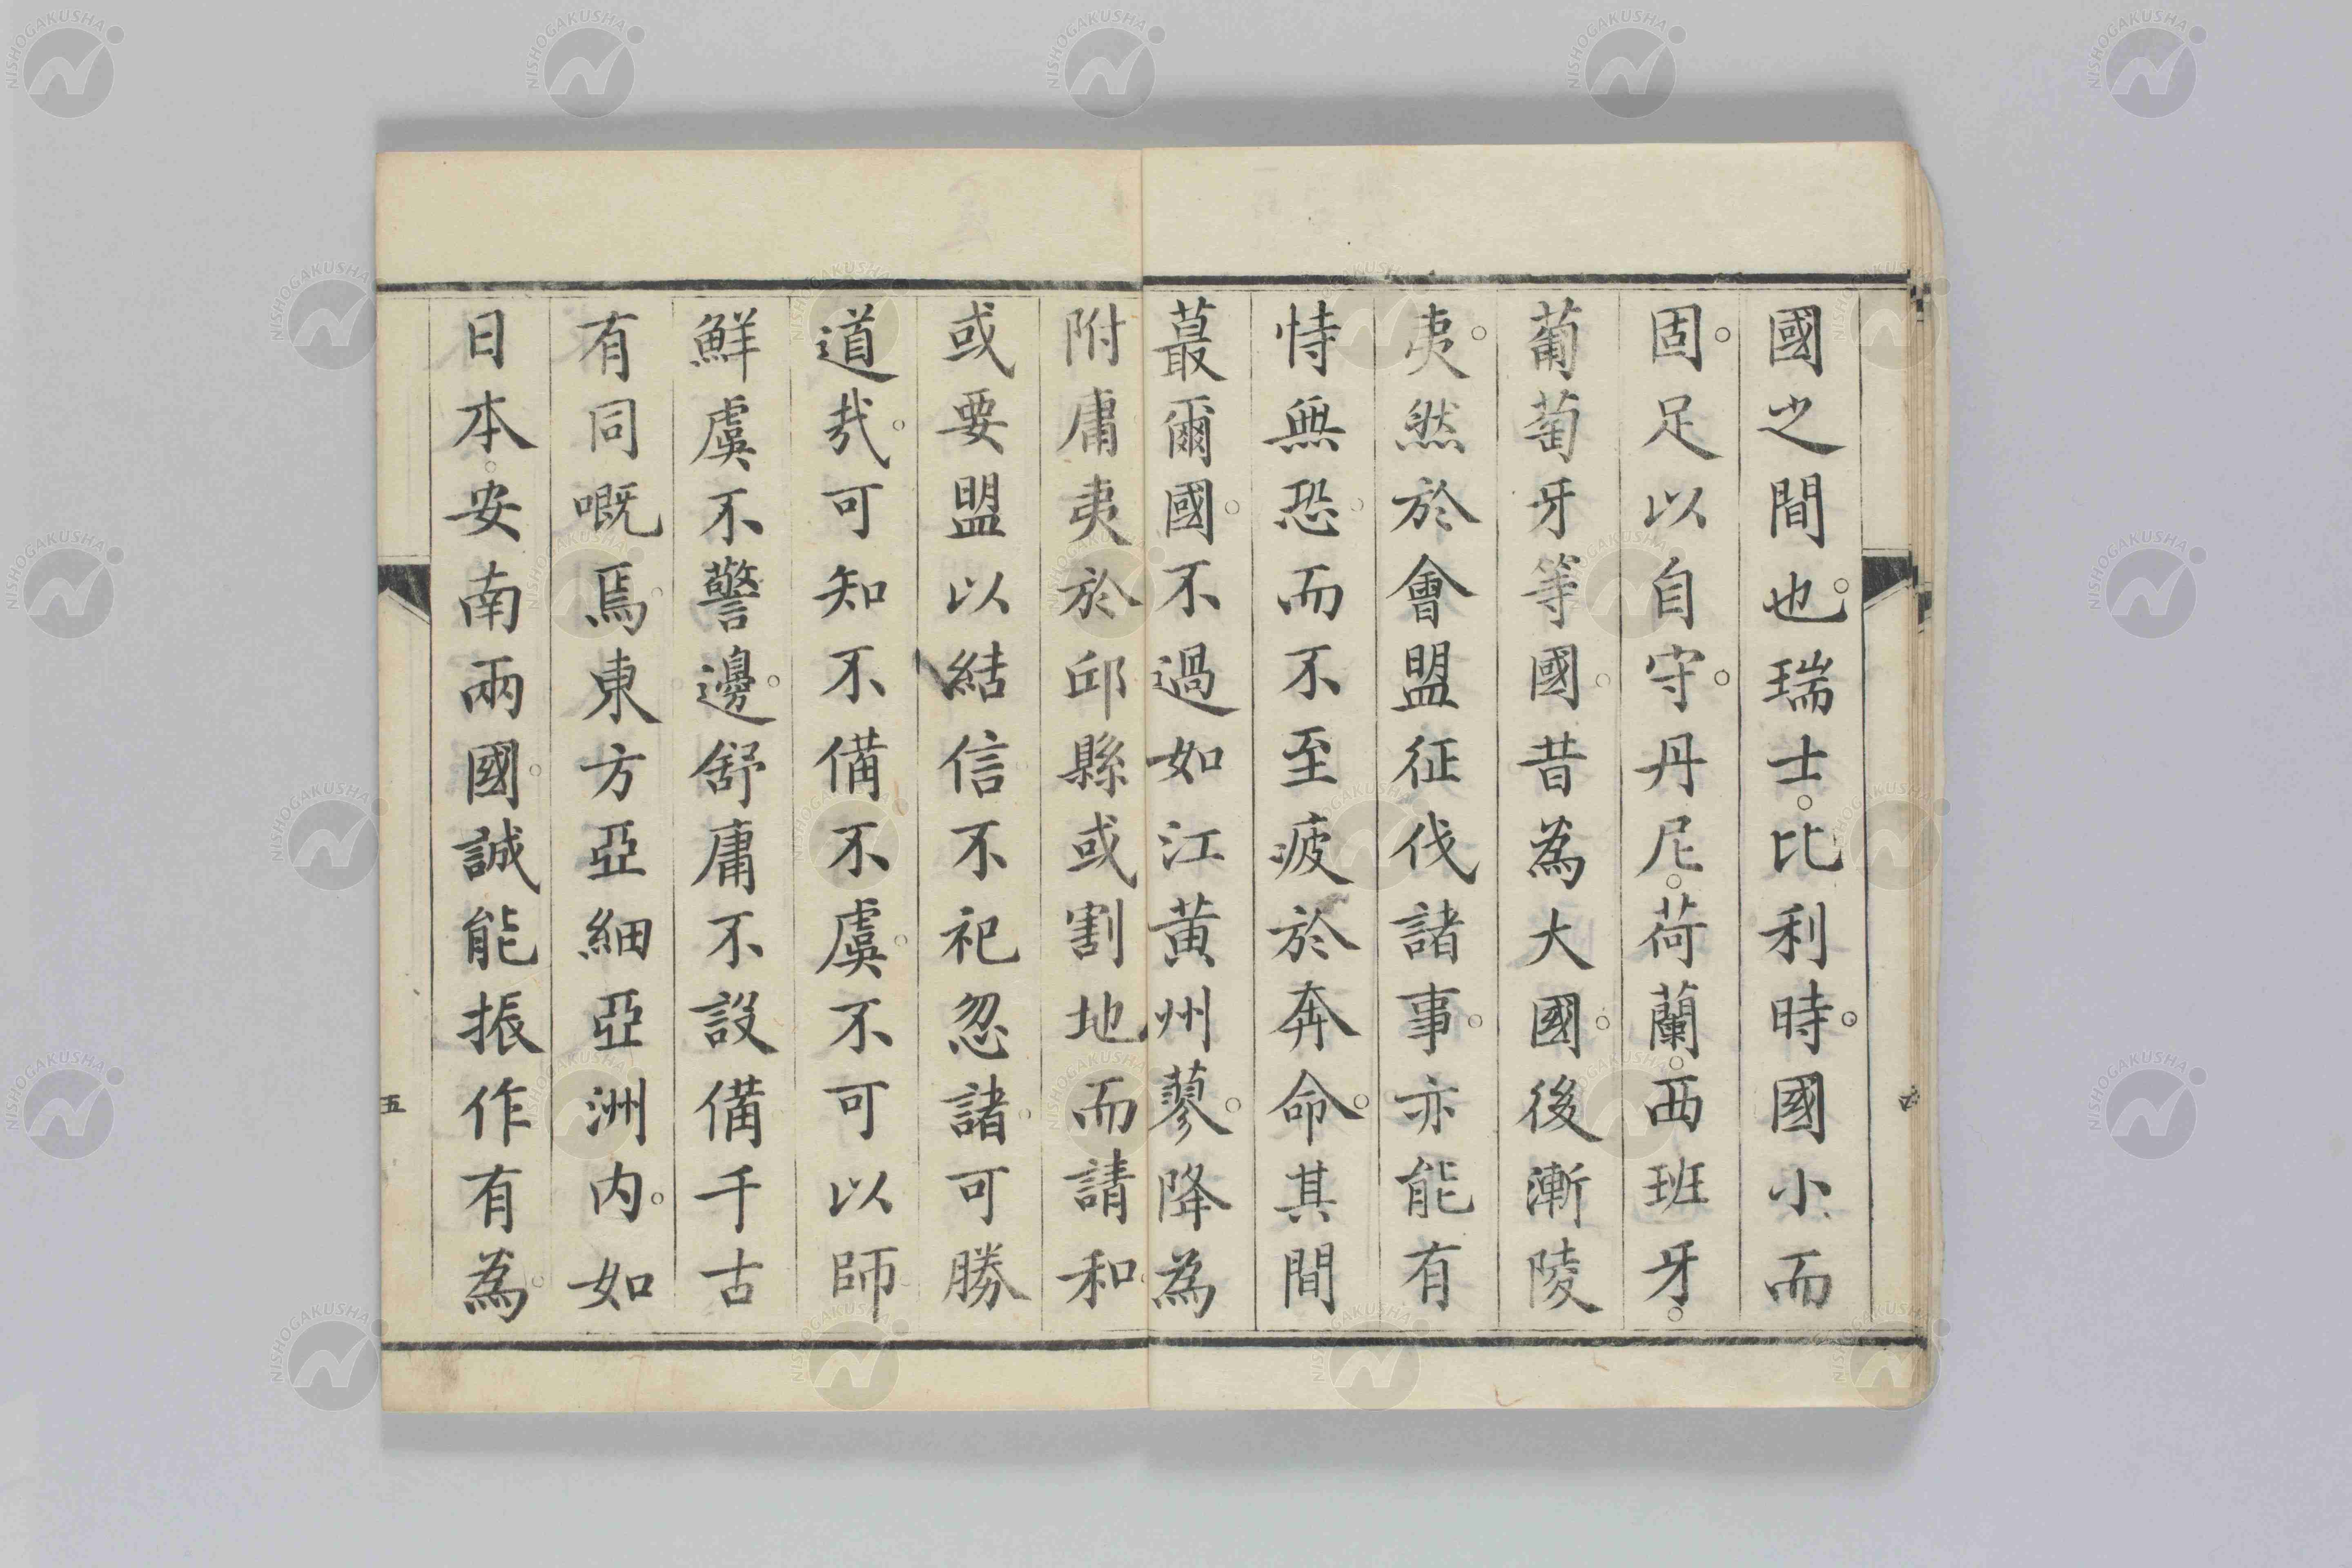 國之間也。瑞士。比利時。國小而
固。足以自守。丹尼。荷蘭。西班牙。
葡萄牙等國。昔為大國。後漸陵
夷。然於會盟征伐諸事。亦能有
恃無恐。而不至疲於奔命。其間
蕞爾國。不過如江黃州蓼。降為
附庸夷於邱縣或割地而請和。
或要盟以結信。不祀忽諸。可勝
道哉。可知不備不虞。不可以師。
鮮虞不警邊。舒庸不設備。千古
有同嘅焉。東方亞細亞洲內。如
日本。安南兩國。誠能振作有為。
五
NISHOGAKUSHA